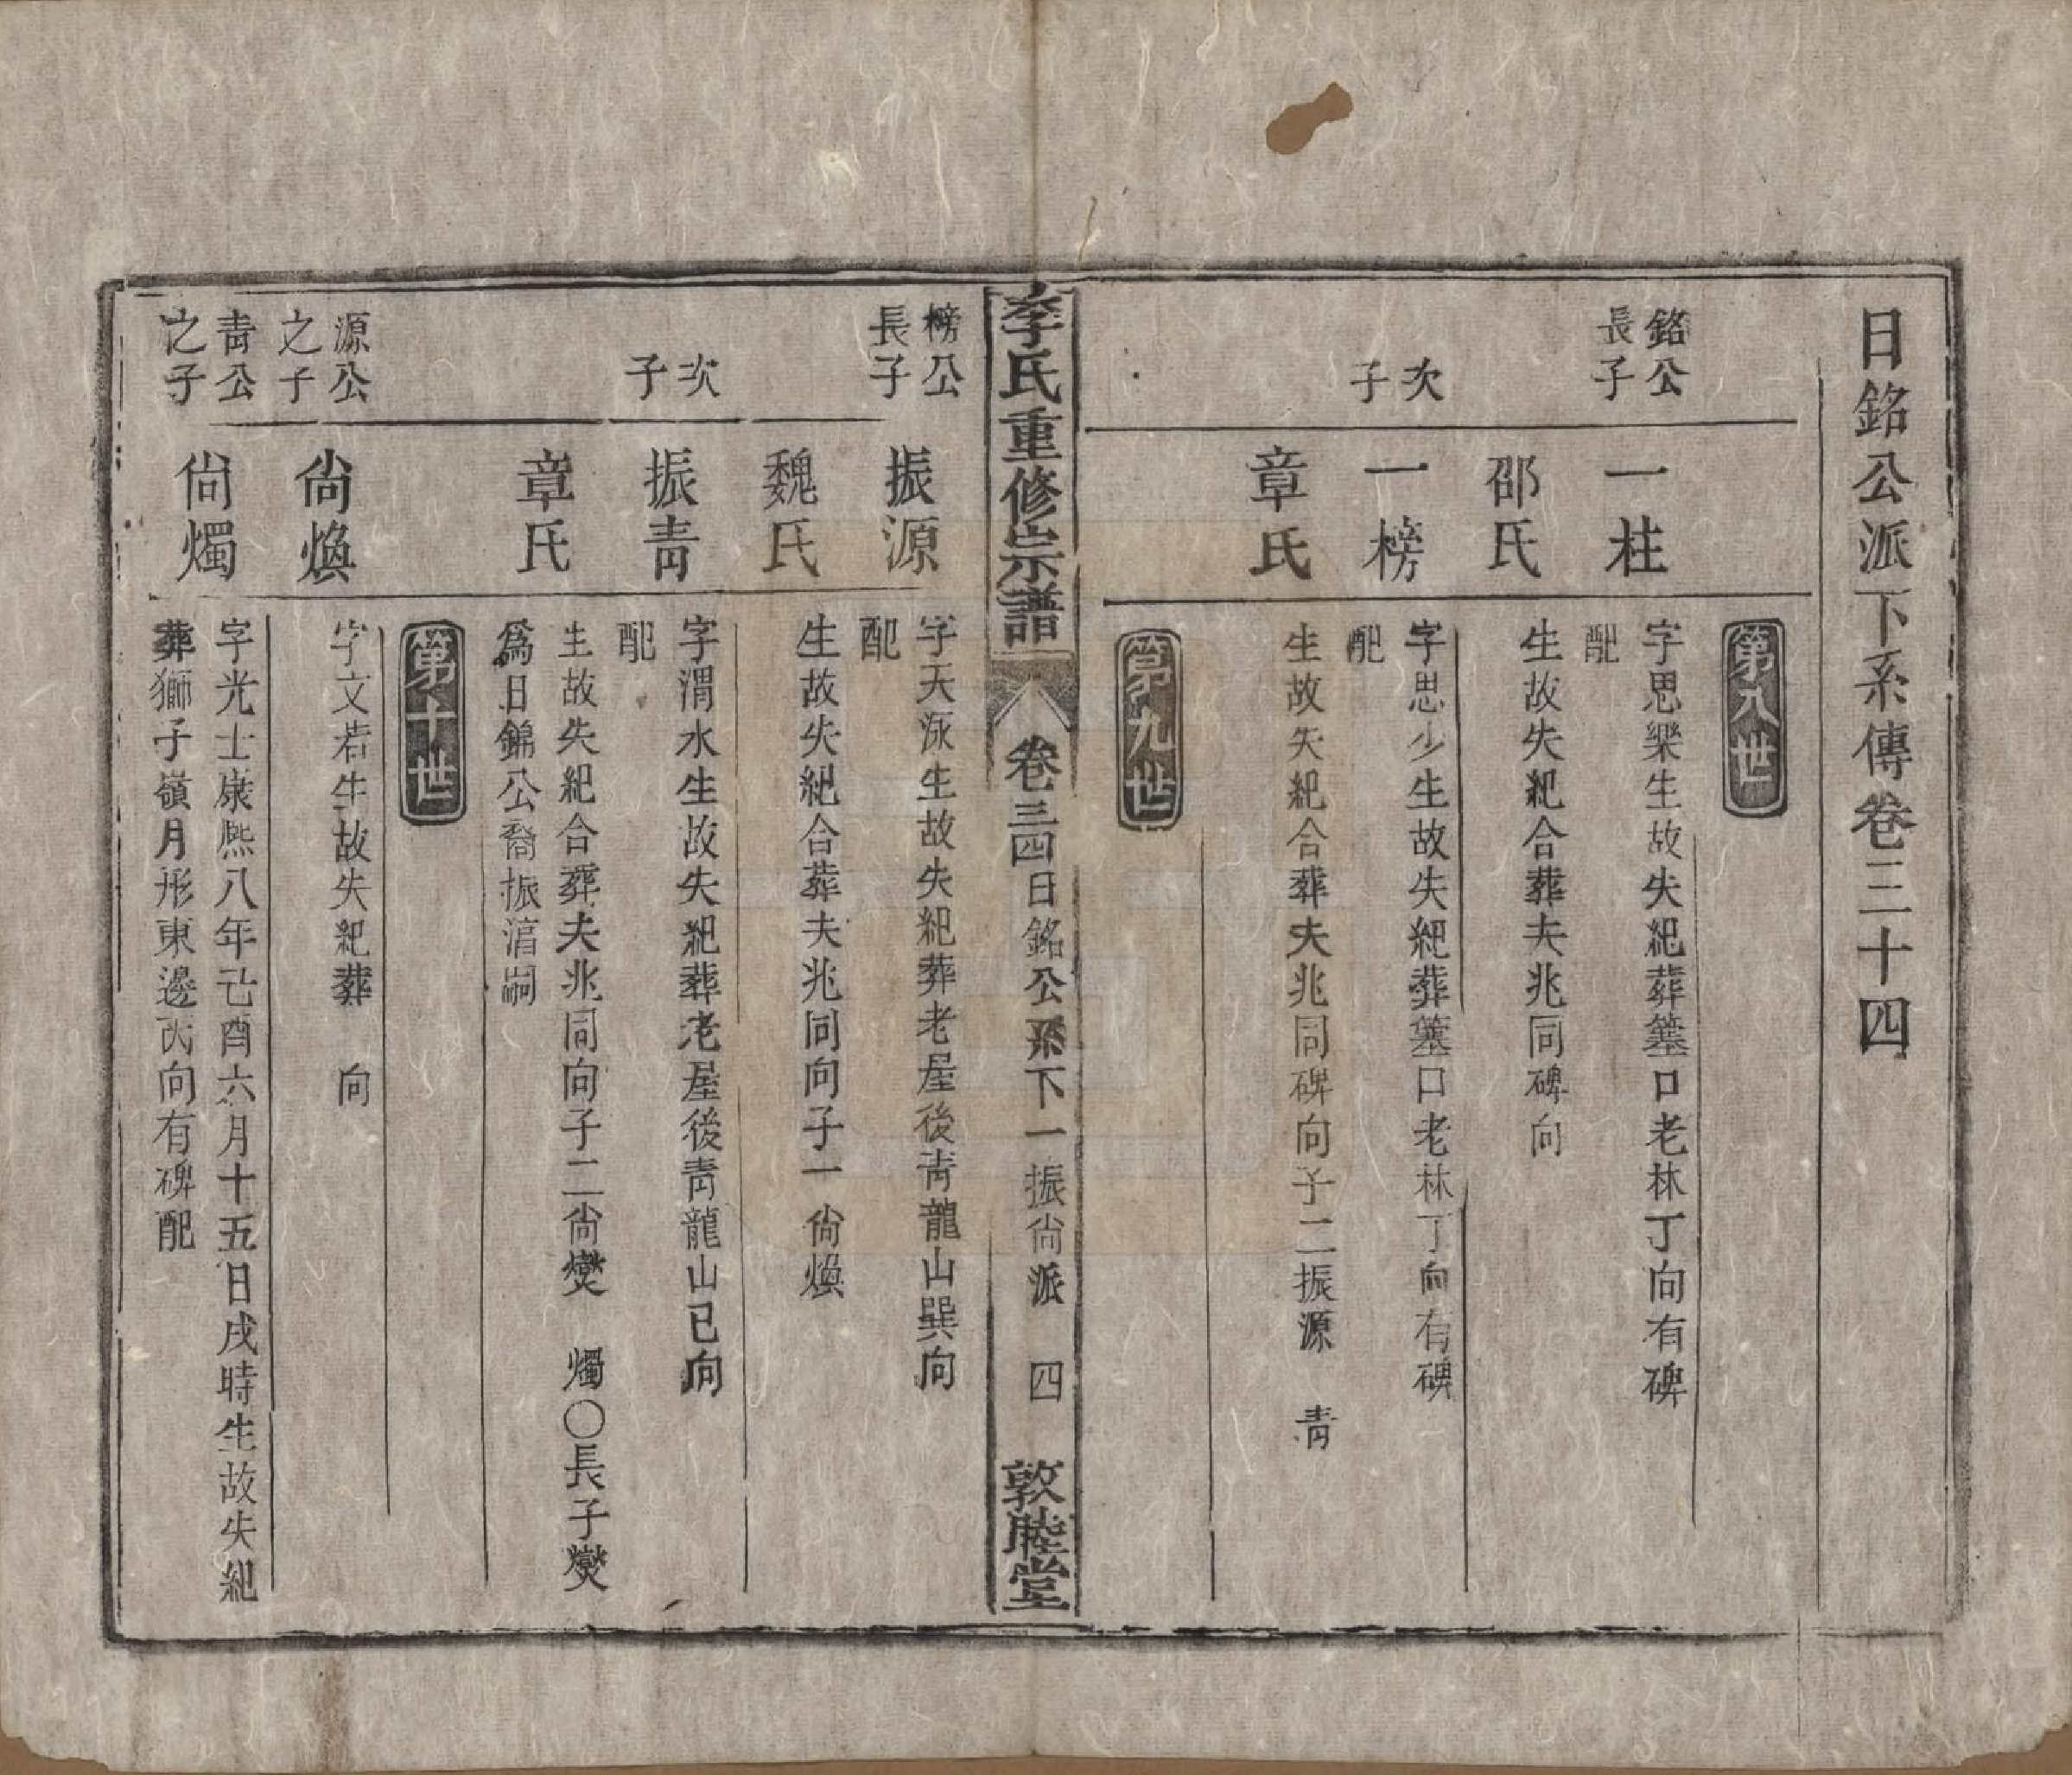 日銘公派下系傳卷三十四
第八世
銘公長子
一柱
字思樂生故失紀葬墓口老林丁向有碑
配
邵氏
生故失紀合葬夫兆同碑向
次子
一榜
字思少生故失紀葬墓口老林丁向有碑
配
章氏
生故失紀合葬夫兆同碑向子二振源　青
第九世
李氏重修宗譜
卷三四日銘公系下一振尙派　四
敦睦堂
榜公長子
振源
字天泳生故失紀葬老屋後青龍山巽向
配
魏氏
生故失紀合葬夫兆同向子一尙煥
次子
振青
字渭水生故失紀葬老屋後青龍山巳向
配
章氏
生故失紀合葬夫兆同向子二尙爕　燭〇長子爕
爲日錦公裔振湻嗣
第十世
源公之子
尙煥
字文若生故失紀葬　向
青公之子
尙燭
字光士康熙八年己酉六月十五日戌時生故失紀
葬獅子嶺月形東邊丙向有碑配